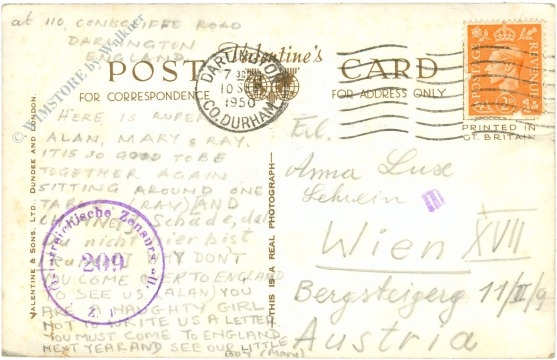 at 110, CONISCLIFFE ROAD
DARLINGTON
ENGLAND
Valentine's
POST CARD
FOR CORRESPONDENCE
FOR ADDRESS ONLY
DARLINGTON
7 30
1950
CO. DURHAM
POSTAGE REVENUE
PRINTED IN
GT. BRITAIN
© WAMSTORE by Walkner
HERE IS RUPERT
ALAN, MARY & RAY.
IT IS SO GOOD TO BE
TOGETHER AGAIN
SITTING AROUND ONE
TABLE (RAY) AND
Schade, daß
Du nicht hier bist
WHY DON'T
YOU COME OVER TO ENGLAND
TO SEE US (ALAN) YOU
ARE A NAUGHTY GIRL
NOT TO WRITE US A LETTER
YOU MUST COME TO ENGLAND
NEXT YEAR AND SEE OUR LITTLE
BOY (Mary)
Österreichische Zensurstelle
209
VALENTINE & SONS, LTD., DUNDEE AND LONDON.
THIS IS A REAL PHOTOGRAPH
Frl.
Anna Luse
Wien XVII
Bergsteigerg 11/II/9
Austria